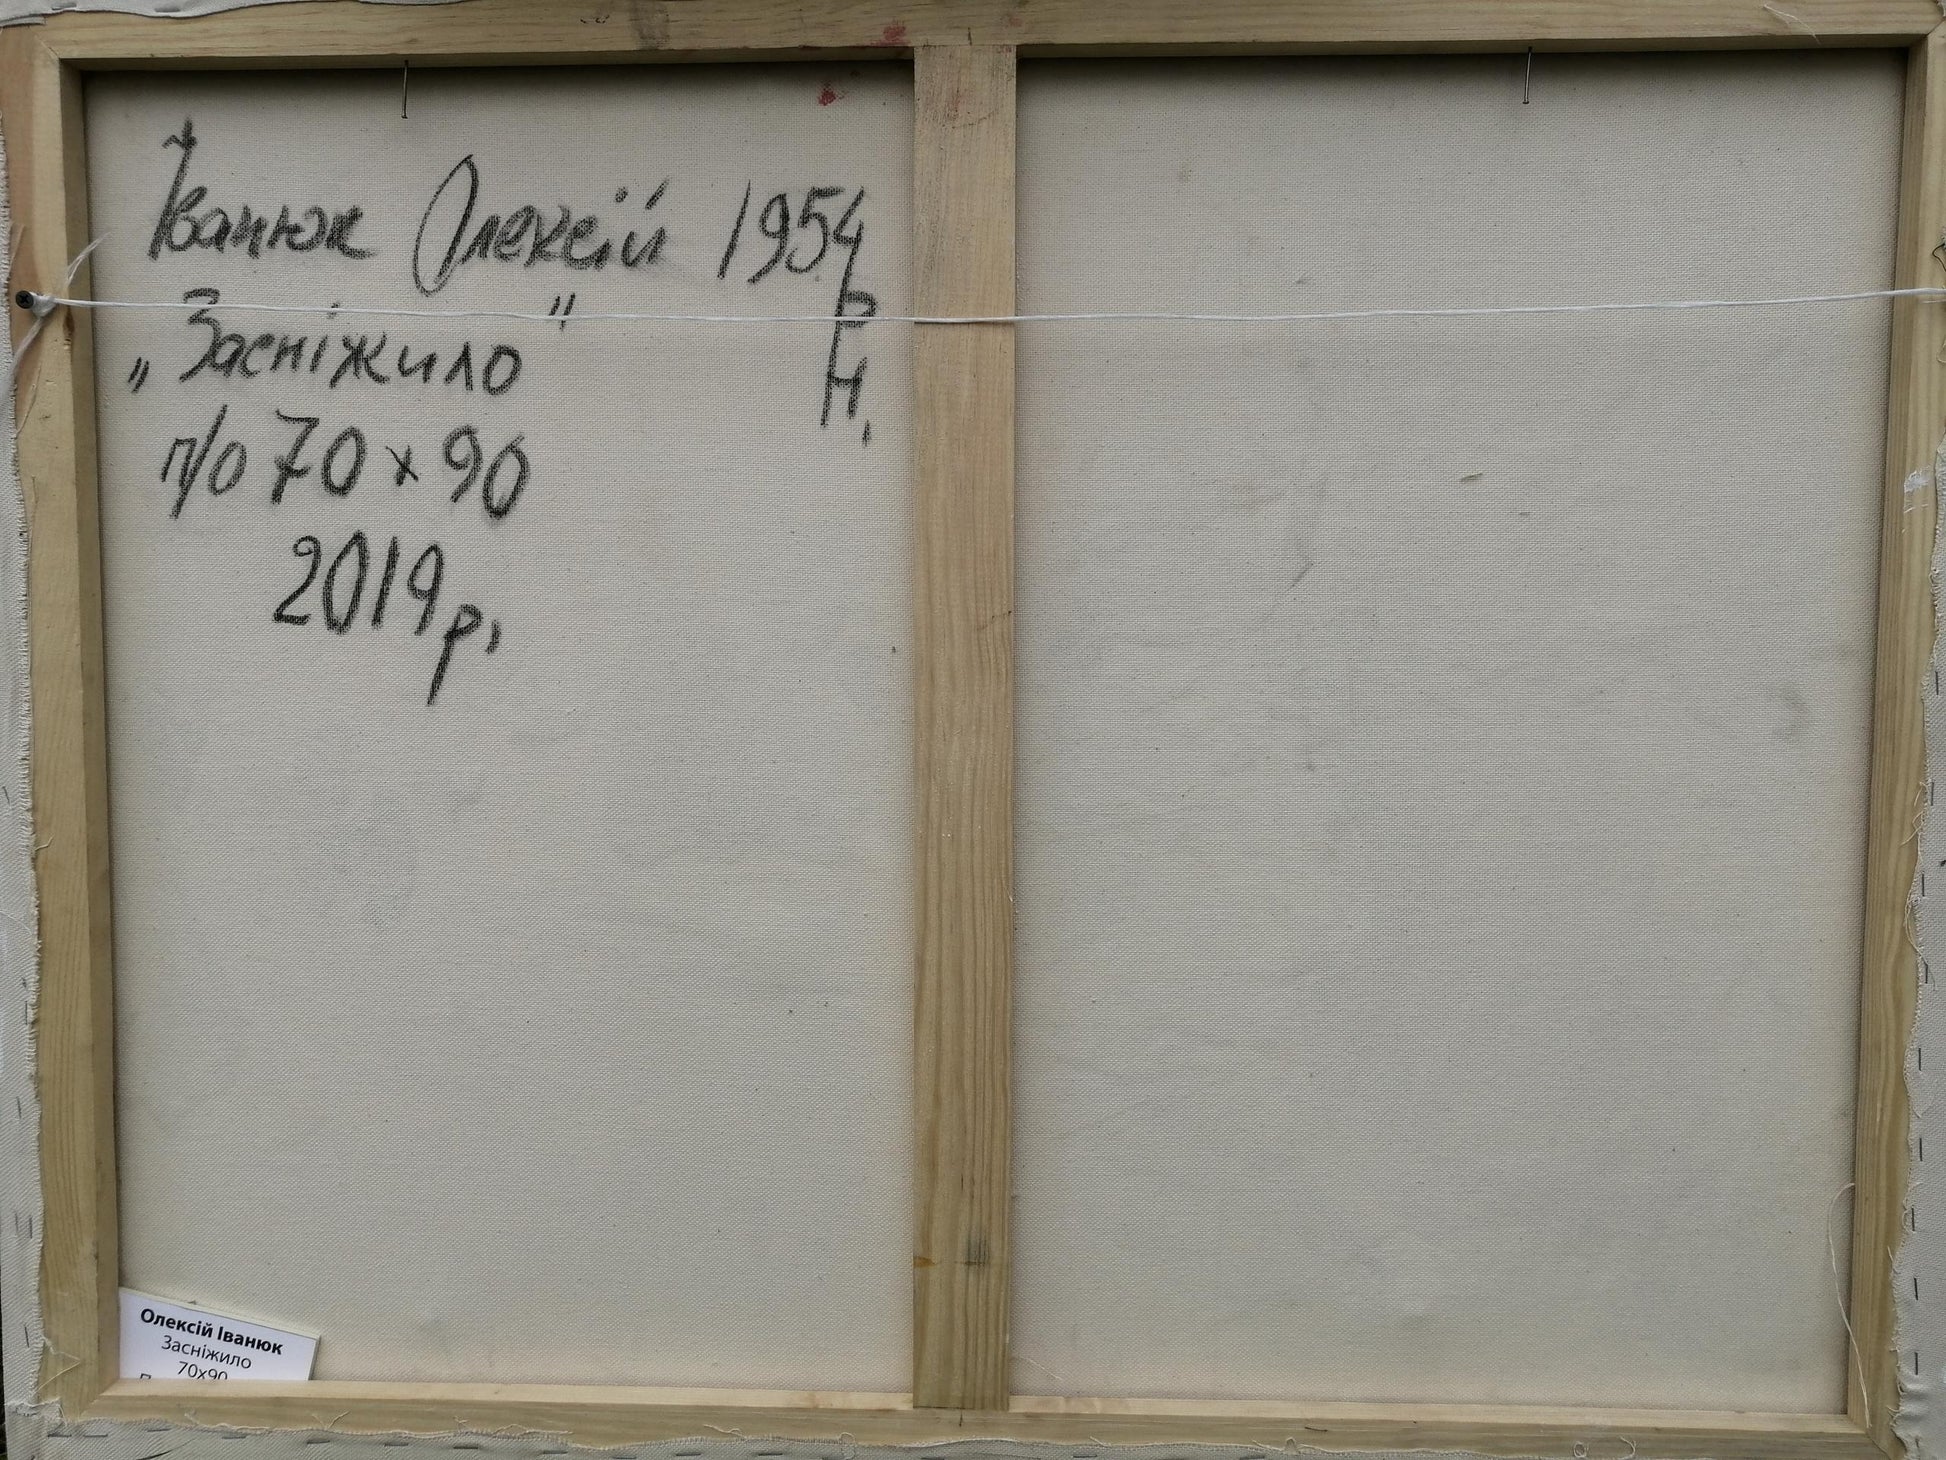 Іванюк Олексій 1954
р
н.
„Засніжило"
п/о 70 х 90
2019 р.
Олексій Іванюк
Засніжило
70х90